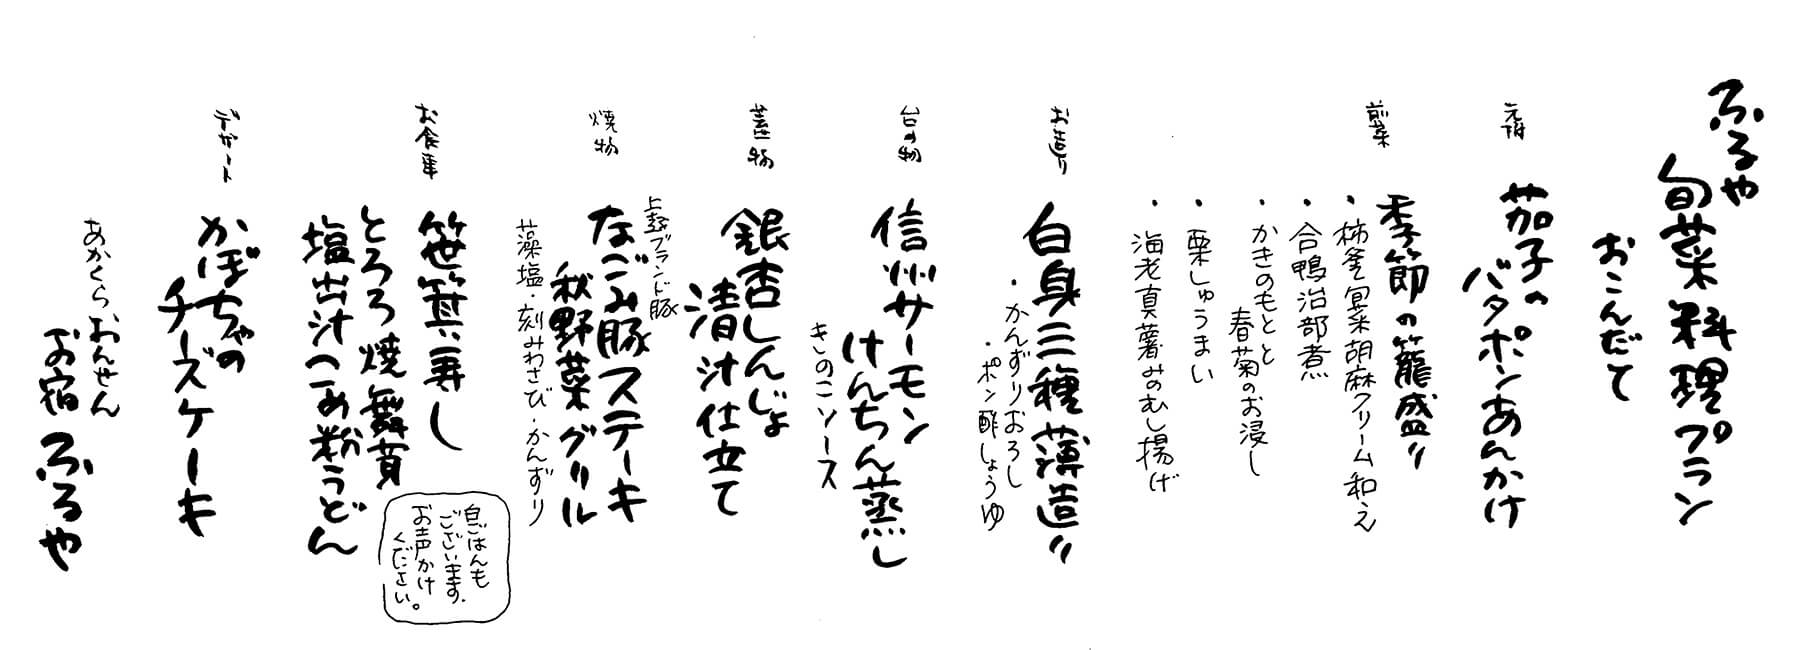 ふるや
旬菜料理プラン
おこんだて
先附
茄子の
バタポンあんかけ
前菜
季節の籠盛り
・柿釜冥菜胡麻クリーム和え
・合鴨治部煮
・かきのもとと
春菊のお浸し
・栗しゅうまい
・海老真薯みのむし揚げ
お造り
白身三種薄造り
・かんずりおろし
・ポン酢しょうゆ
台の物
信州サーモン
けんちん蒸し
きのこソース
蓋物
銀杏しんじょ
清汁仕立て
焼物
上越ブランド豚
なごみ豚ステーキ
秋野菜グリル
藻塩・刻みわさび・かんずり
お食事
笹寿し
とろろ焼舞茸
塩出汁へぎ粉うどん
白ごはんも
ございます。
お声かけ
ください。
デザート
かぼちゃの
チーズケーキ
あかくらおんせん
お宿ふるや